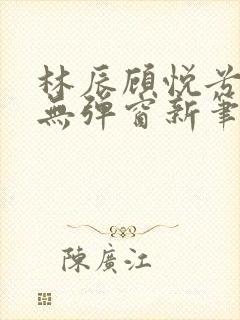 林辰顾悦
無彈窗新筆
陳廣江